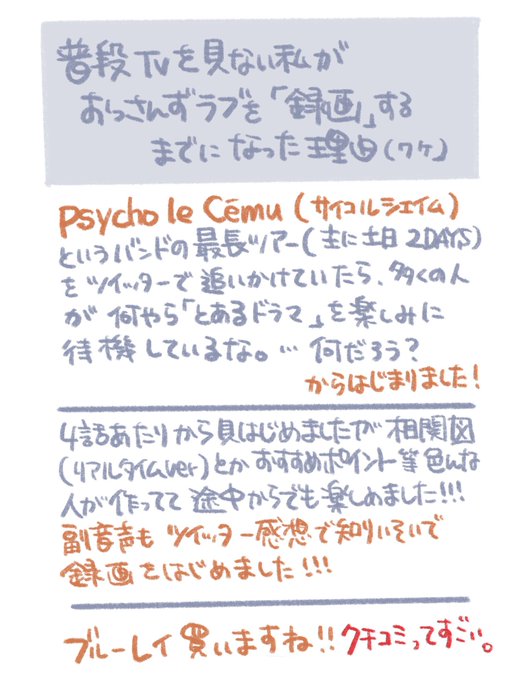 普段TVを見ない私が
おっさんずラブを「録画」する
までになった理由(ワケ)
Psycho le Cému (サイコルシェイム)
というバンドの最長ツアー(主に土日2DAYS)
をツイッターで追いかけていたら、多くの人
が何やら「とあるドラマ」を楽しみに
待機しているな。… 何だろう?
からはじまりました!
4話あたりから見はじめましたが相関図
(リアルタイムver)とかおすすめポイント等色んな
人が作ってて途中からでも楽しめました!!!
副音声もツイッター感想で知りいそいで
録画をはじめました!!!
ブルーレイ買いますね!! クチコミってすごい。